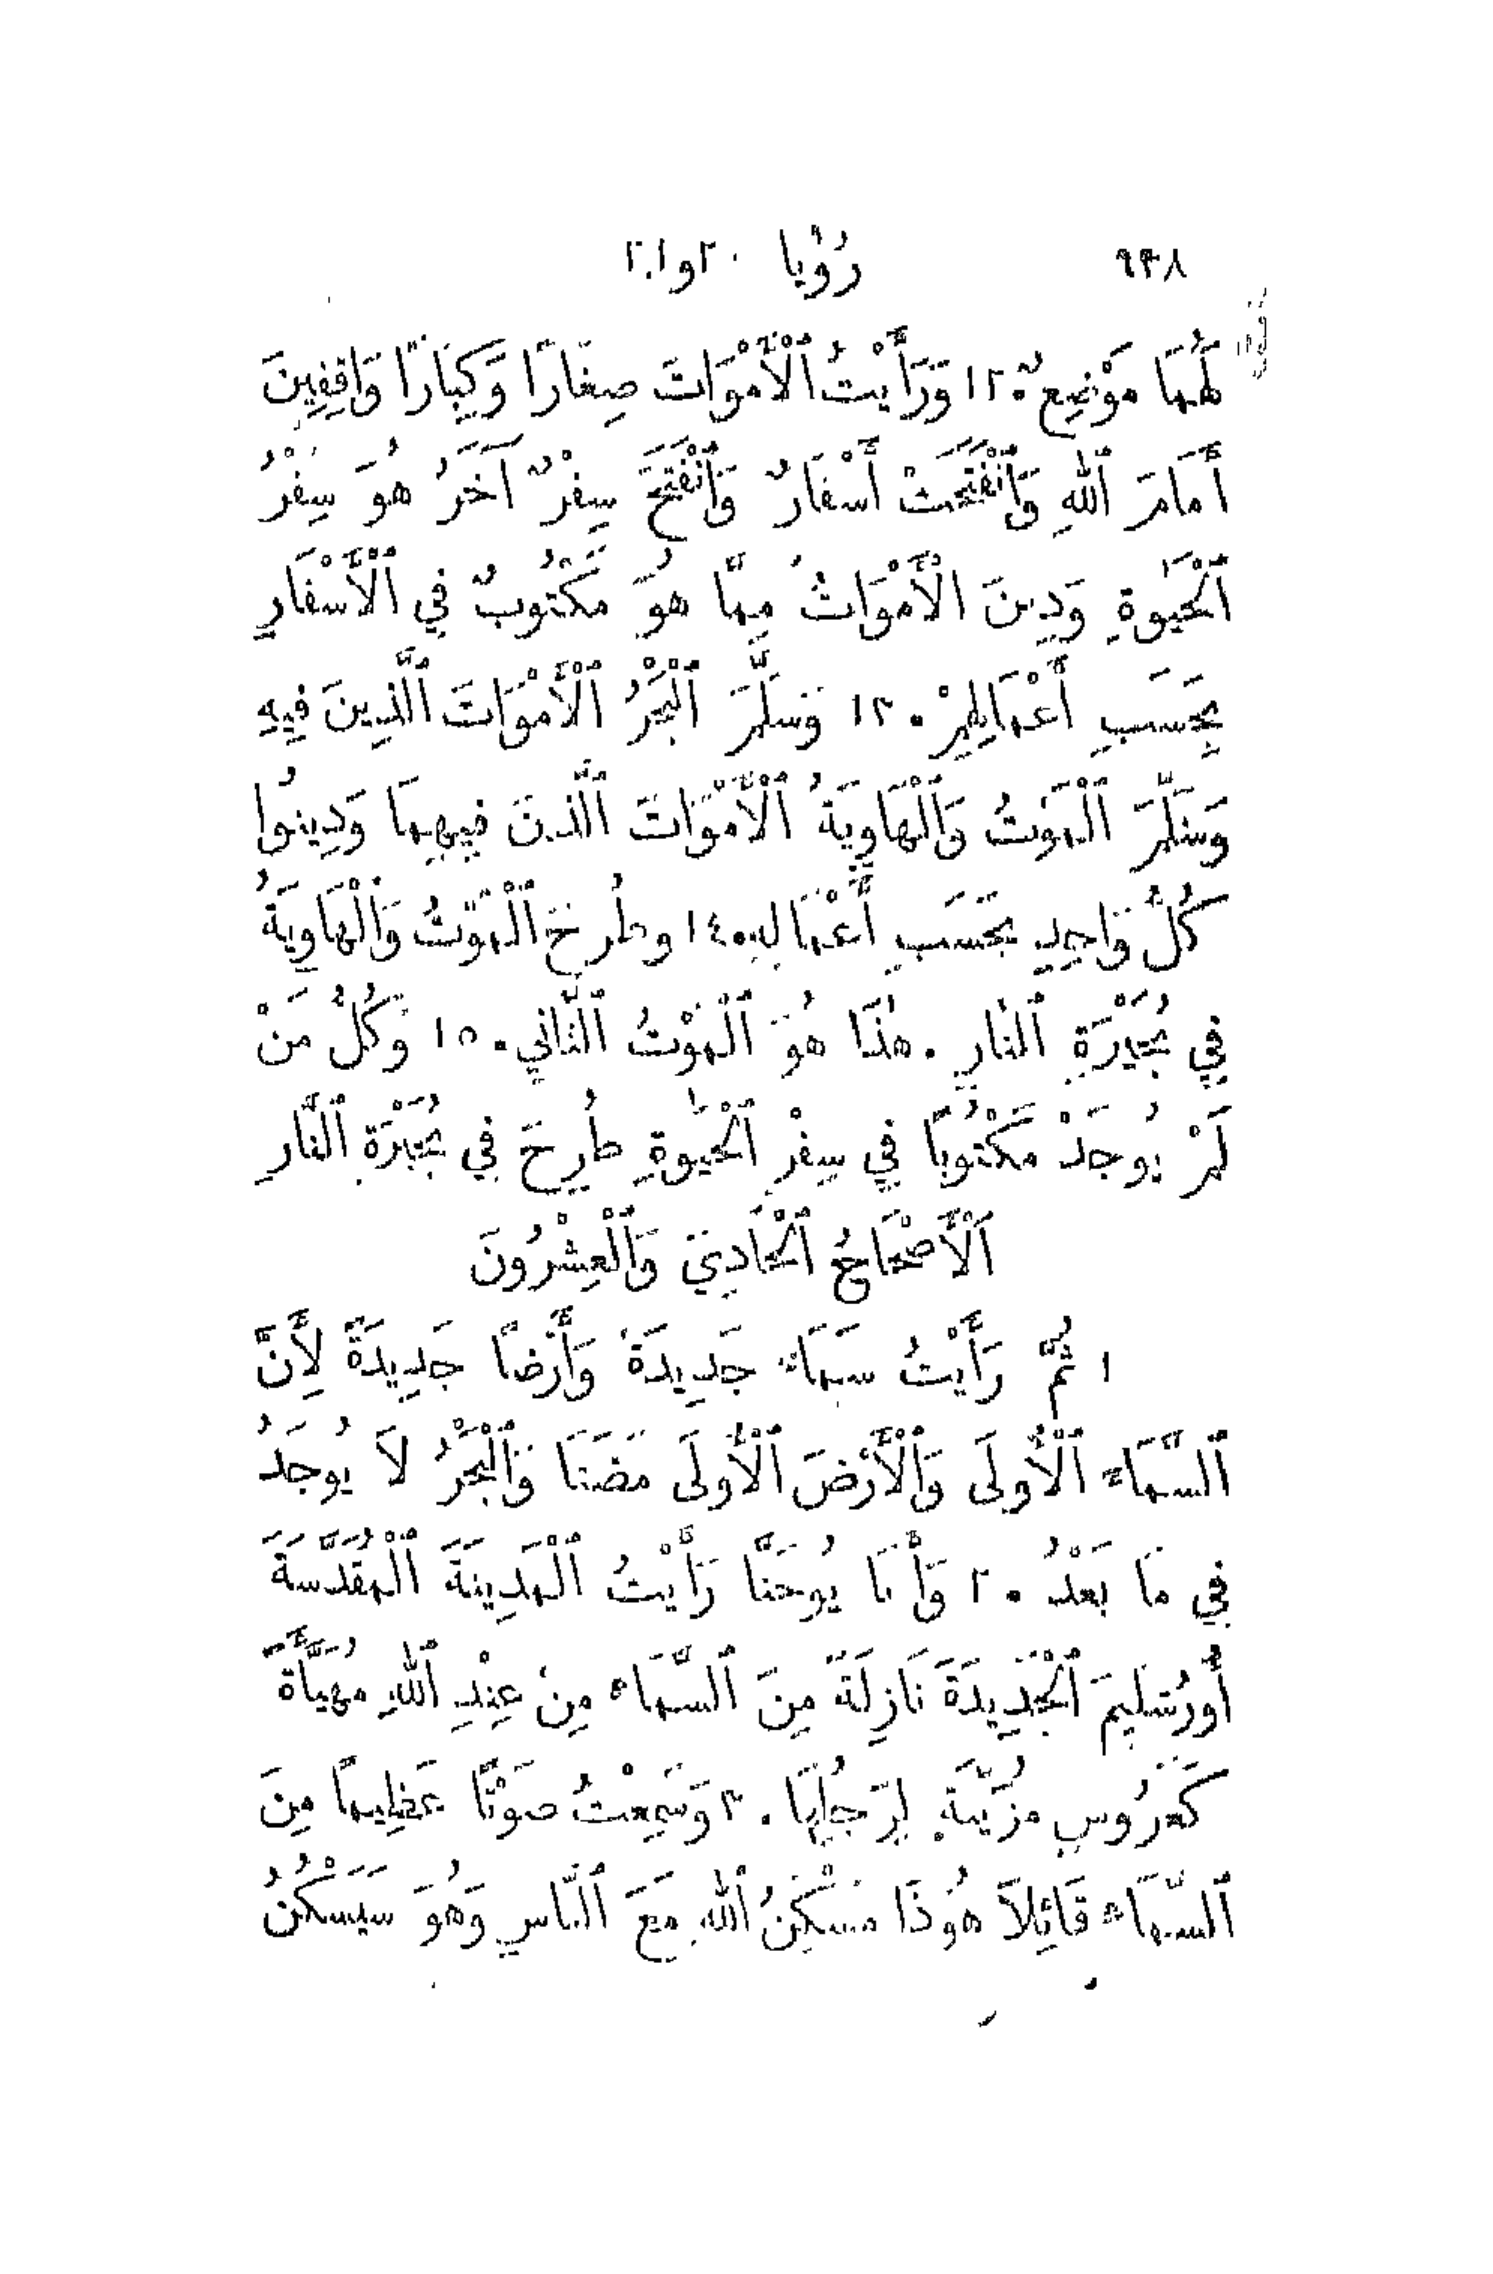 ٩٣٨ رُؤْيا ٢٠ و٢١
لَهُمَا مَوْضِعٌ. ١٢ وَرَأَيْتُ ٱلْأَمْوَاتَ صِغَارًا وَكِبَارًا وَاقِفِينَ
أَمَامَ ٱللهِ وَٱنْفَتَحَتْ أَسْفَارٌ وَٱنْفَتَحَ سِفْرٌ آخَرُ هُوَ سِفْرُ
ٱلْحَيٰوةِ وَدِينَ ٱلْأَمْوَاتُ مِمَّا هُوَ مَكْتُوبٌ فِي ٱلْأَسْفَارِ
بِحَسَبِ أَعْمَالِهِمْ. ١٣ وَسَلَّمَ ٱلْبَحْرُ ٱلْأَمْوَاتَ ٱلَّذِينَ فِيهِ
وَسَلَّمَ ٱلْمَوْتُ وَٱلْهَاوِيَةُ ٱلْأَمْوَاتَ ٱلَّذِينَ فِيهِمَا وَدِينُوا
كُلُّ وَاحِدٍ بِحَسَبِ أَعْمَالِهِ. ١٤ وَطُرِحَ ٱلْمَوْتُ وَٱلْهَاوِيَةُ
فِي بُحَيْرَةِ ٱلنَّارِ. هٰذَا هُوَ ٱلْمَوْتُ ٱلثَّانِي. ١٥ وَكُلُّ مَنْ
لَمْ يُوجَدْ مَكْتُوبًا فِي سِفْرِ ٱلْحَيٰوةِ طُرِحَ فِي بُحَيْرَةِ ٱلنَّارِ
اَلْأَصْحَاحُ ٱلْحَادِي وَٱلْعِشْرُونَ
١ ثُمَّ رَأَيْتُ سَمَاءً جَدِيدَةً وَأَرْضًا جَدِيدَةً لِأَنَّ
ٱلسَّمَاءَ ٱلْأُولَى وَٱلْأَرْضَ ٱلْأُولَى مَضَتَا وَٱلْبَحْرُ لَا يُوجَدُ
فِي مَا بَعْدُ. ٢ وَأَنَا يُوحَنَّا رَأَيْتُ ٱلْمَدِينَةَ ٱلْمُقَدَّسَةَ
أُورُشَلِيمَ ٱلْجَدِيدَةَ نَازِلَةً مِنَ ٱلسَّمَاءِ مِنْ عِنْدِ ٱللهِ مُهَيَّأَةً
كَعَرُوسٍ مُزَيَّنَةٍ لِرَجُلِهَا. ٣ وَسَمِعْتُ صَوْتًا عَظِيمًا مِنَ
ٱلسَّمَاءِ قَائِلًا هُوَذَا مَسْكَنُ ٱللهِ مَعَ ٱلنَّاسِ وَهُوَ سَيَسْكُنُ